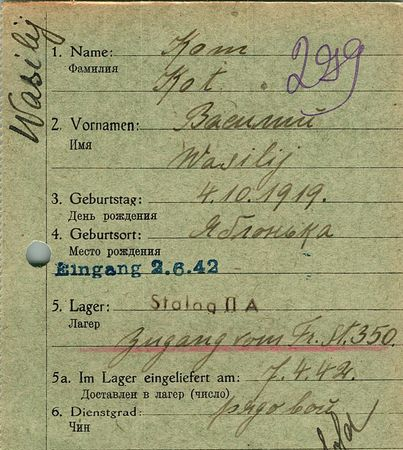 Wasilij
1. Name: Кот
Фамилия Kot
2. Vornamen: Василий
Имя
Wasilij
3. Geburtstag: 4.10.1919.
День рождения
4. Geburtsort: Яблонька
Место рождения
Eingang 2.6.42
5. Lager: Stalag II A
Лагерь
Zugang vom Fr. St. 350.
5a. Im Lager eingeliefert am: 7.4.42.
Доставлен в лагерь (число)
6. Dienstgrad: рядовой
Чин